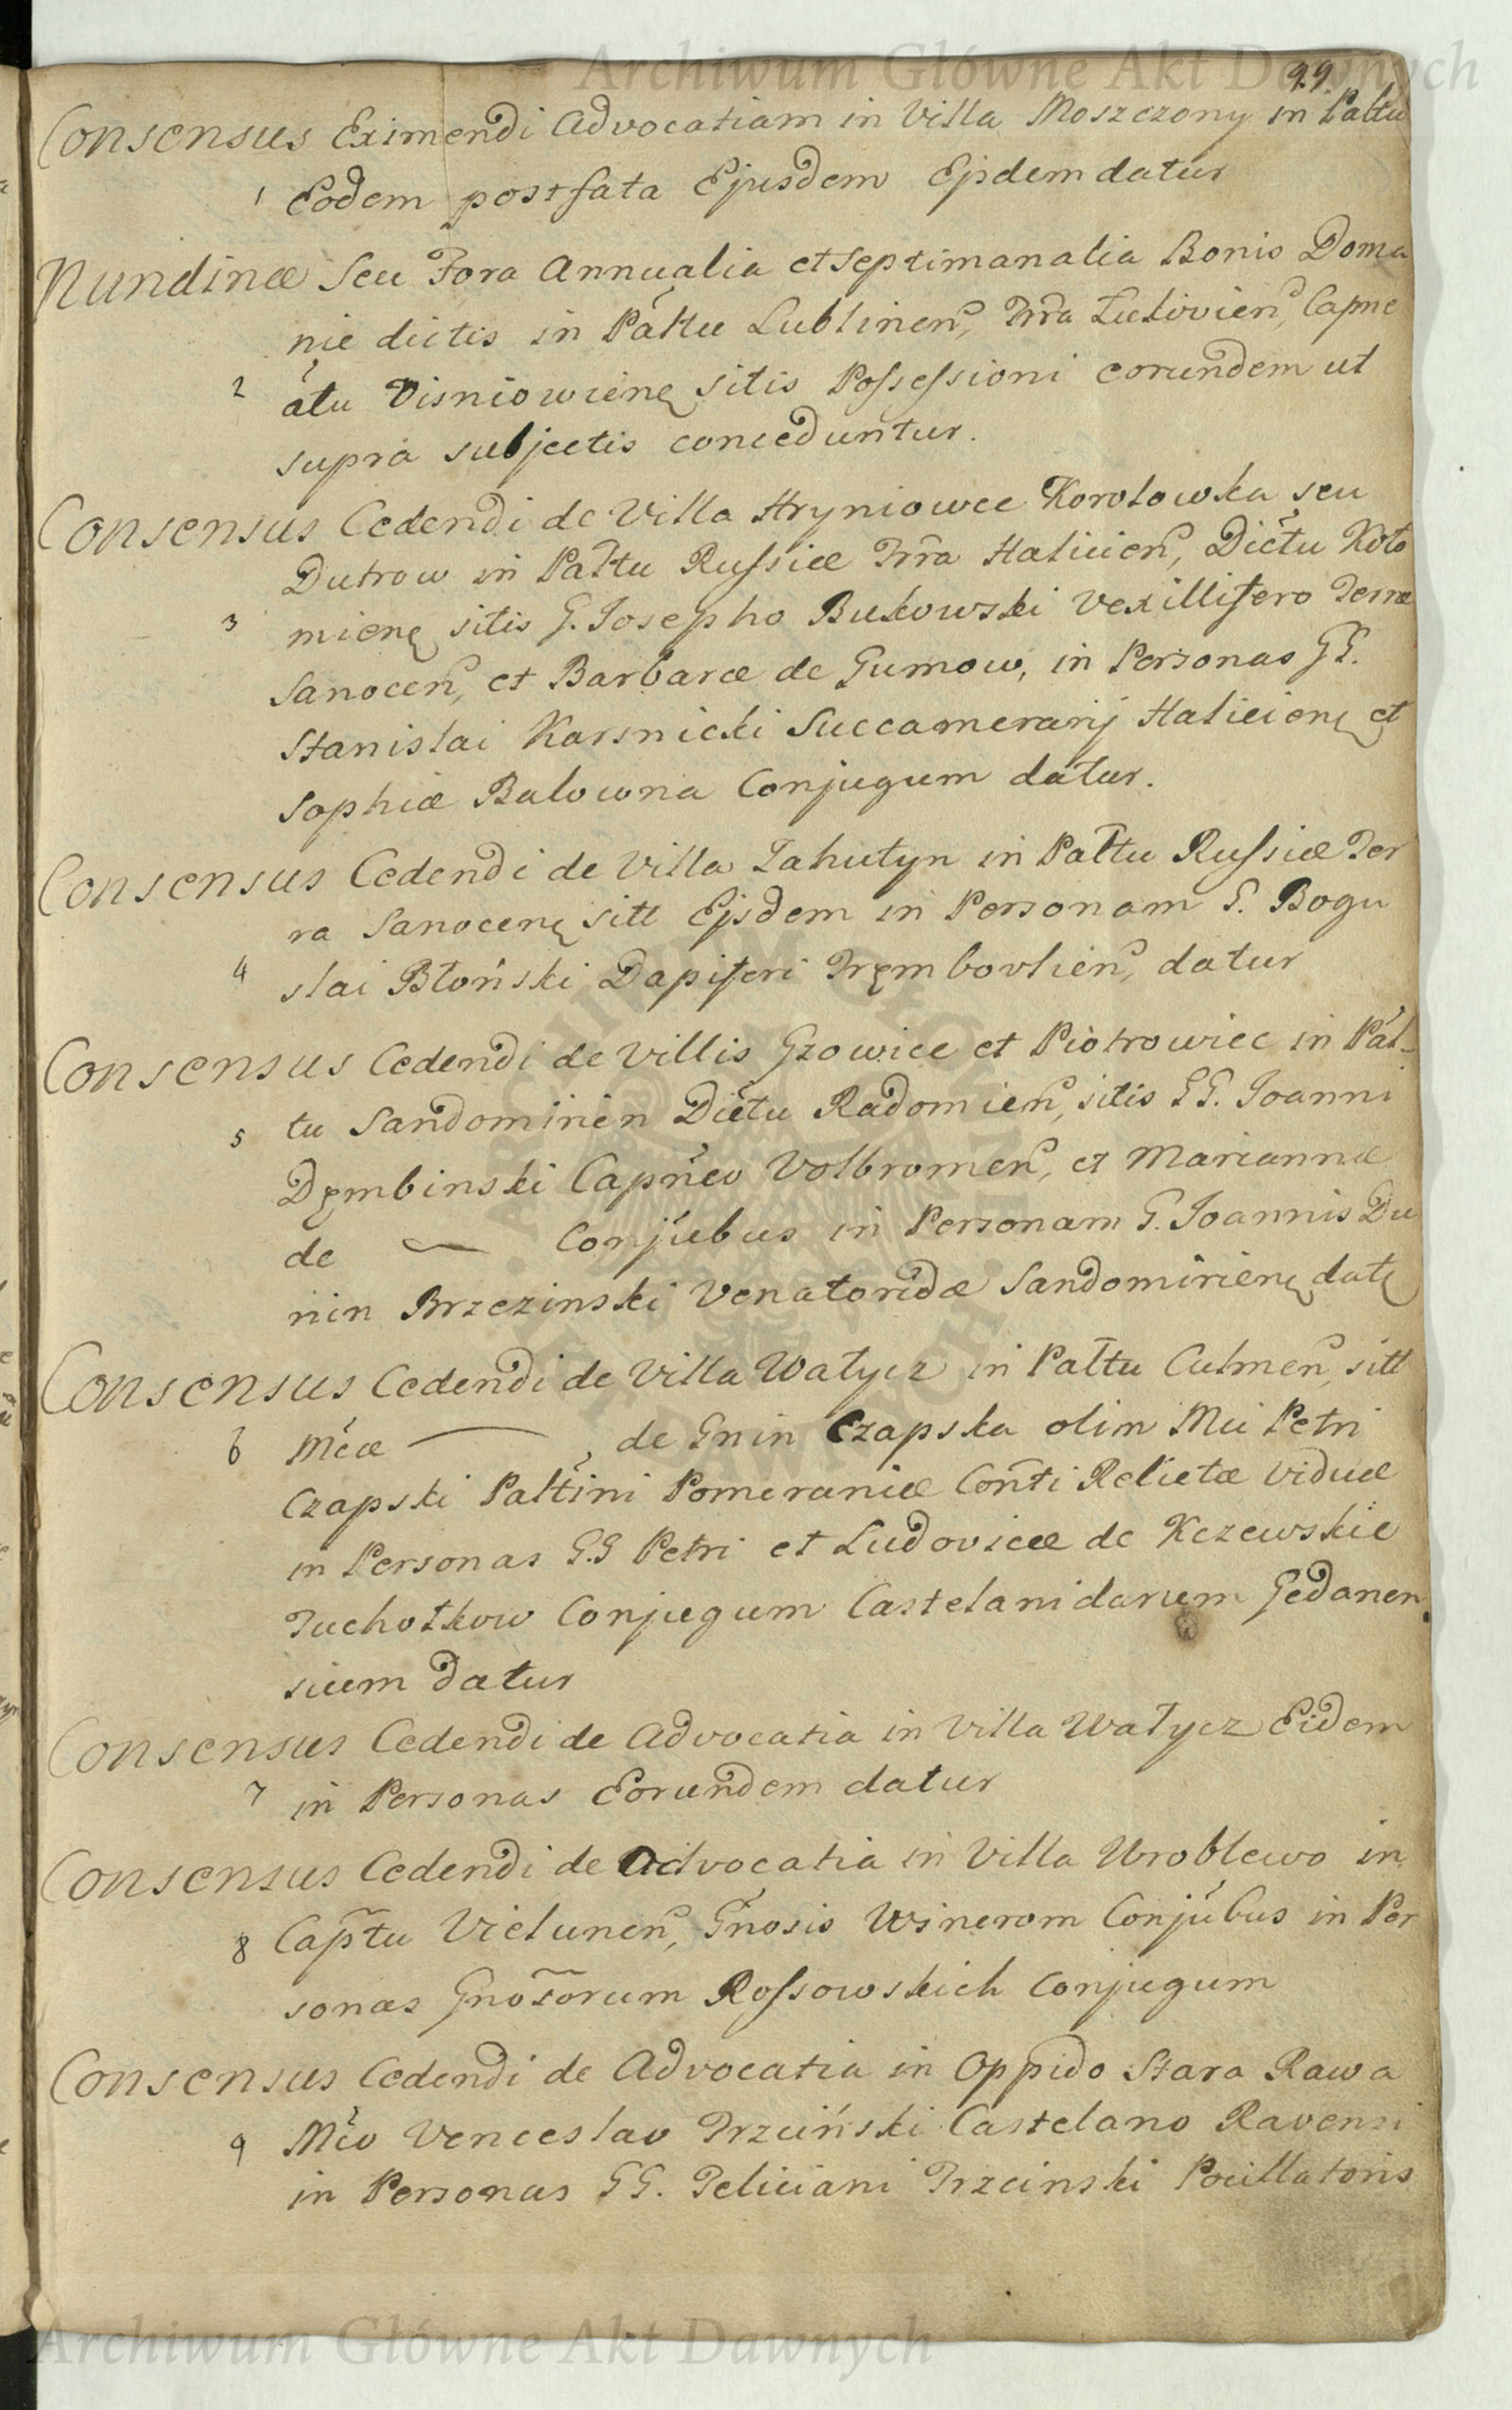 Archiwum Główne Akt Dawnych
99.
Consensus Eximendi Advocatiam in Villa Moszczony in Paltu
1 Eodem post fata Ejusdem Ejdem datur
Nundinæ Seu Fora Annualia et Septimanalia Bonis Doma
nie dictis in Paltu Lublinen, Trra Lukovien, Capne
2 atu Visniowien sitis Possessioni eorundem ut
supra subjectis conceduntur.
Consensus Cedendi de Villa Hryniowce Korolowka seu
Dutrow in Paltu Russiæ Trra Halicien, Dictu Koło
3 mien sitis G. Josepho Bukowski Vexillifero Terræ
Sanocen, et Barbaræ de Gumow, in Personas GG.
Stanislai Karsnicki Succamerarij Halicien et
Sophiæ Balowna Conjugum datur.
Consensus Cedendi de Villa Zahutyn in Paltu Russiæ Ter
ra Sanocen sitt Ejsdem in Personam G. Bogu
4 slai Błoński Dapiferi Trembovlien, datur
Consensus Cedendi de Villis Gzowice et Piotrowiec in Pal-
5 tu Sandominien Dictu Radomien, sitis GG. Joanni
Dęmbinski Capneo Volbromen, et Mariannæ
de — Conjubus in Personam G. Joannis Du
nin Brzezinski Venatoridæ Sandomirien dat
Consensus Cedendi de Villa Wałycz in Paltu Culmen, sitt
6 Mcæ — de Gnin Czapska olim Mci Petri
Czapski Paltini Pomeraniæ Conti Relictæ Viduæ
in Personas G.G Petri et Ludovicæ de Kczewskie
Tuchołkow Conjugum Castelanidarum Gedanen
sium datur
Consensus Cedendi de Advocatia in Villa Wałycz Eidem
7 in Personas Eorundem datur
Consensus Cedendi de Advocatia in Villa Wroblewo in
8 Captu Vielunen, Gnosis Wsinerom Conjubus in Per
sonas Gnosorum Rossowskich Conjugum
Consensus Cedendi de Advocatia in Oppido Stara Rawa
9 Mco Venceslao Trzciński Castelano Ravensi
in Personas GG. Feliciani Trzcinski Pocillatoris
Archiwum Główne Akt Dawnych